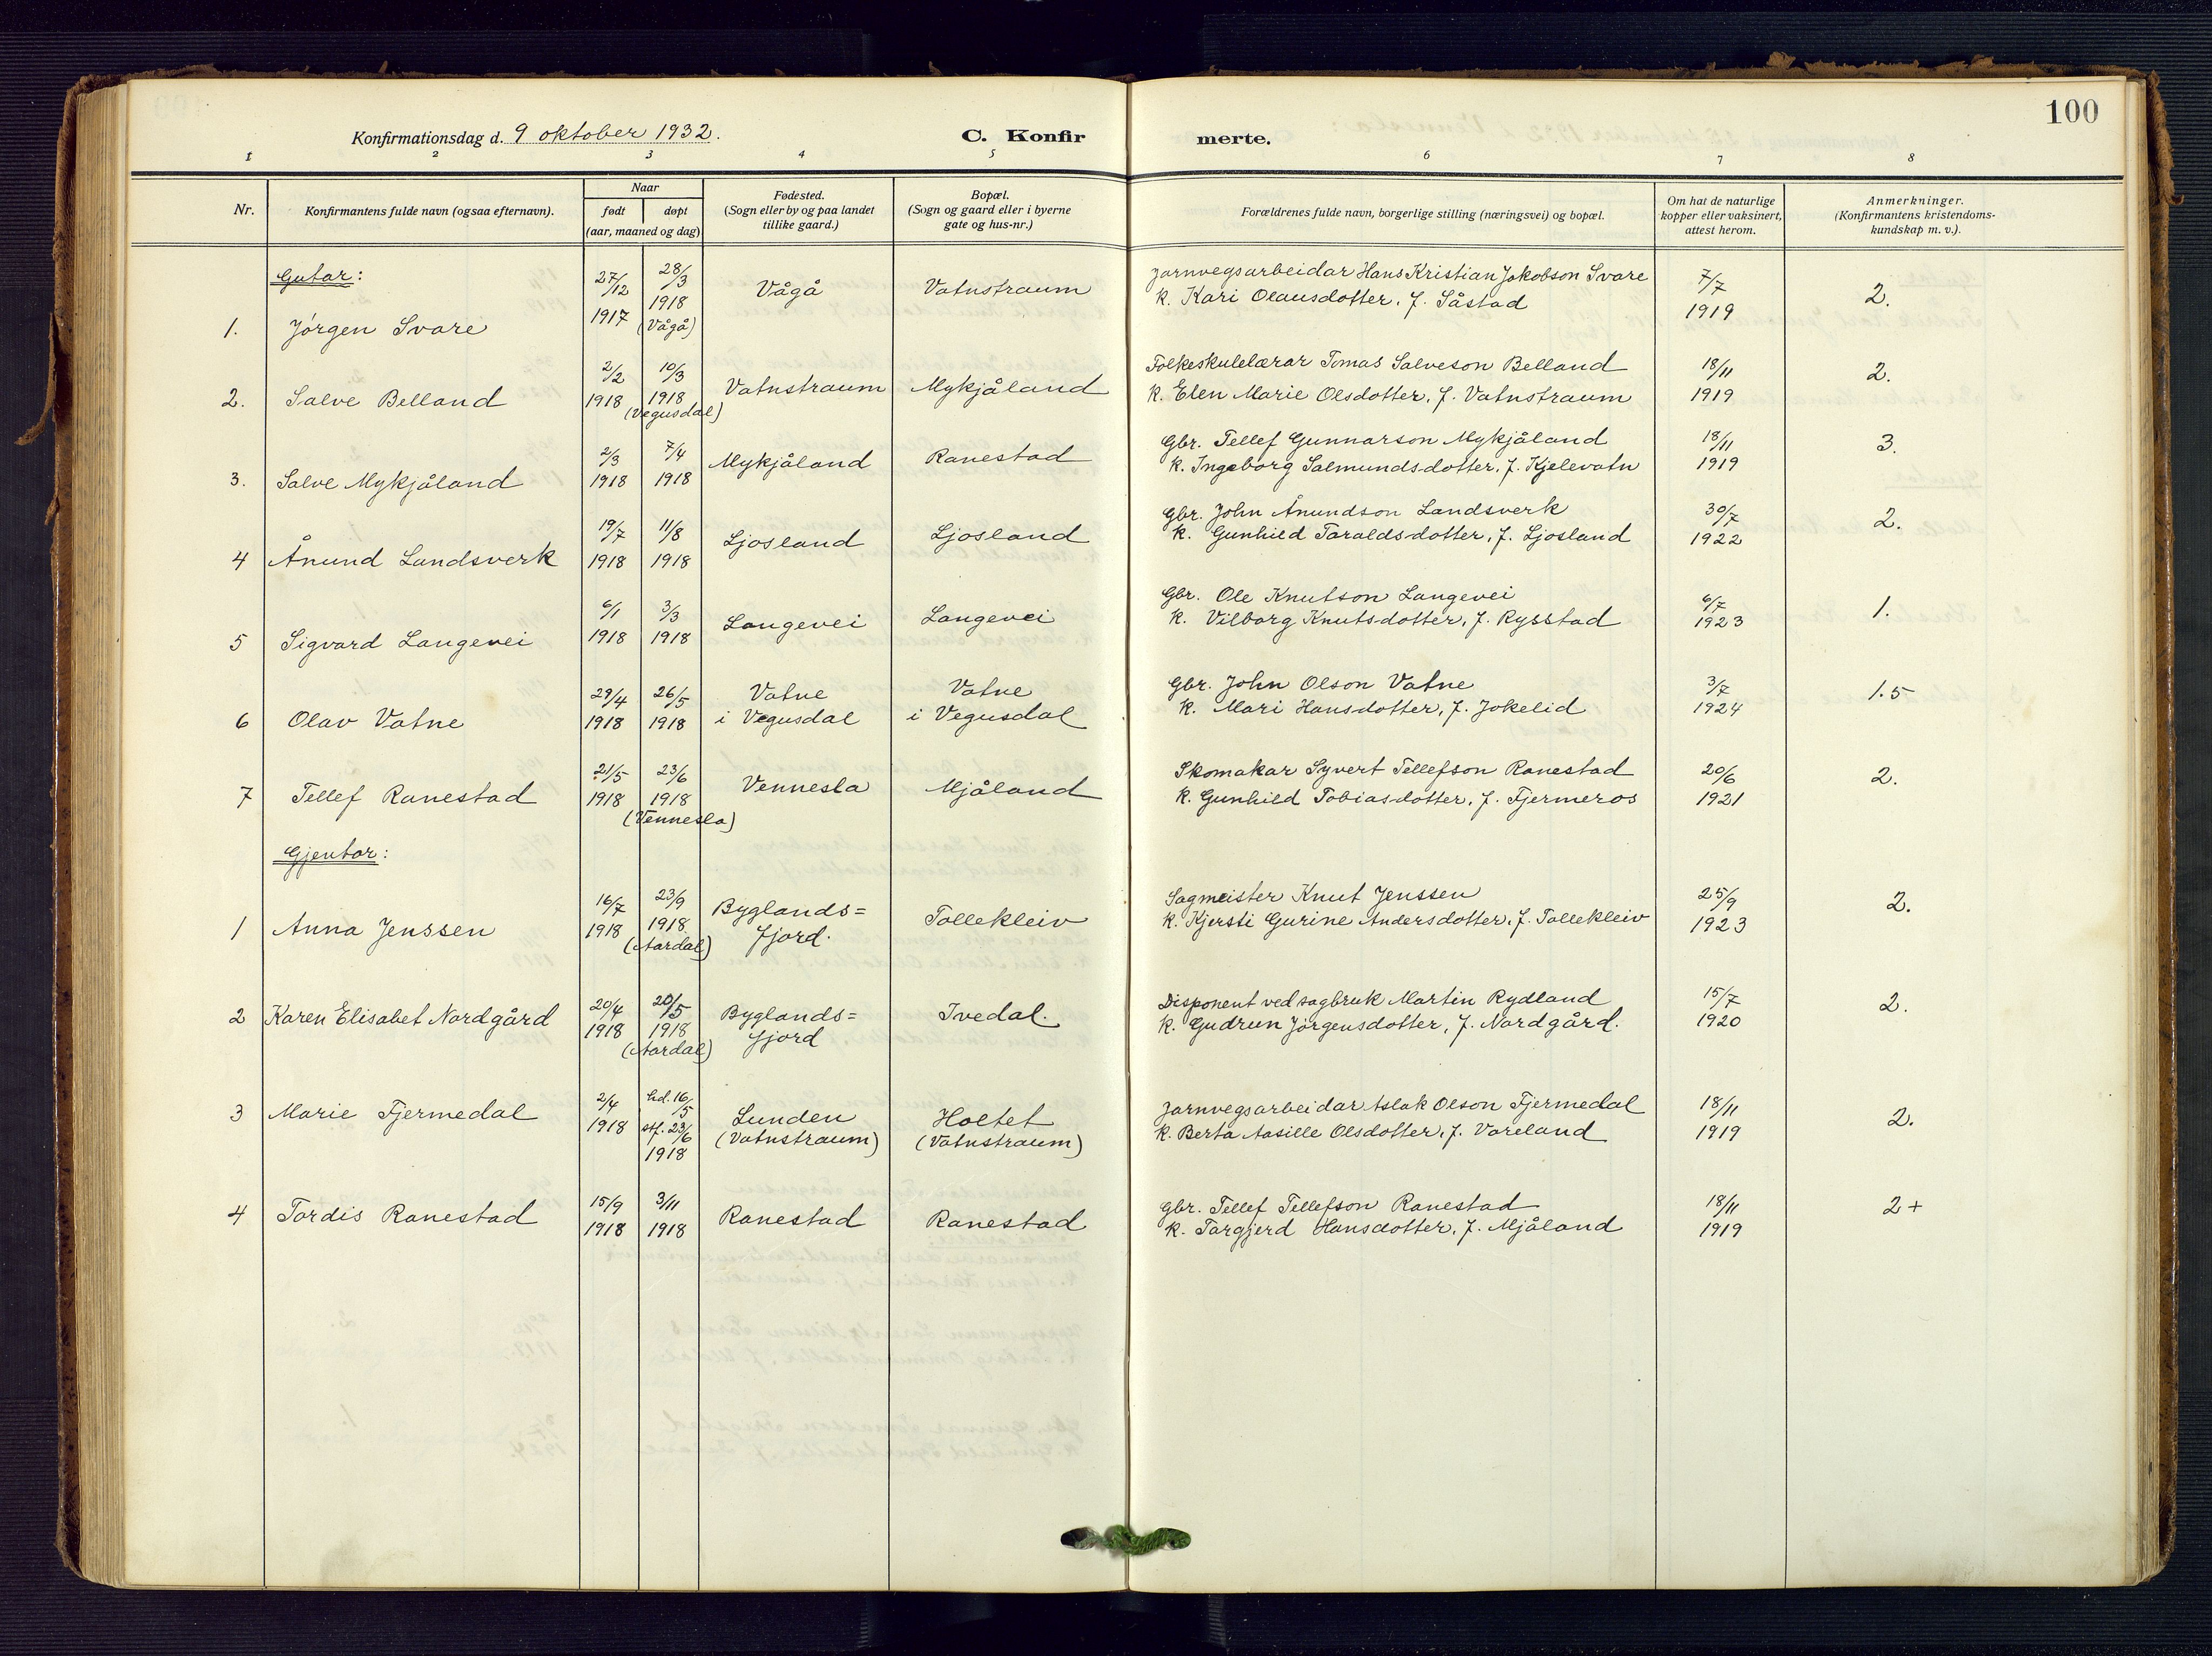 100
Konfirmationsdag d. 9 oktober 1932.
C. Konfirmerte.
1 2 3 4 5 6 7 8
Nr.
Konfirmantens fulde navn (ogsaa efternavn).
Naar
født
døpt
(aar, maaned og dag)
Fødested.
(Sogn eller by og paa landet
tillike gaard.)
Bopæl.
(Sogn og gaard eller i byerne
gate og hus-nr.)
Forældrenes fulde navn, borgerlige stilling (næringsvei) og bopæl.
Om hat de naturlige
kopper eller vaksinert,
attest herom.
Anmerkninger.
(Konfirmantens kristendoms-
kundskap m. v.).
Gutar:
1. Jørgen Svare
27/12
1917
28/3
1918
(Vågå)
Vågå
Vatnstraum
Jarnvegsarbeidar Hans Kristian Jakobson Svare
k. Kari Olausdotter, f. Såstad
7/7
1919
2.
2. Salve Belland
2/2
1918
10/3
1918
(Vegusdal)
Vatnstraum
Mykjåland
Folkeskulelærar Tomas Salveson Belland
k. Elen Marie Olsdotter, f. Vatnstraum
18/11
1919
2.
3. Salve Mykjåland
2/3
1918
7/4
1918
Mykjåland
Ranestad
Gbr. Tellef Gunnarson Mykjåland
k. Ingeborg Salmundsdotter, f. Kjelevatn
18/11
1919
3.
4 Ånund Landsverk
19/7
1918
11/8
1918
Ljosland
Ljosland
Gbr. John Ånundson Landsverk
k. Gunhild Taraldsdotter, f. Ljosland
30/7
1922
2.
5 Sigvard Langevei
6/1
1918
3/3
1918
Langevei
Langevei
Gbr. Ole Knutson Langevei
k. Vilborg Knutsdotter, f. Rysstad
6/7
1923
1.
6 Olav Vatne
29/4
1918
26/5
1918
Vatne
i Vegusdal
Vatne
i Vegusdal
Gbr. John Olson Vatne
k. Mari Hansdotter, f. Jokelid
3/7
1924
1.5
7 Tellef Ranestad
21/5
1918
23/6
1918
(Vennesla)
Vennesla
Mjåland
Skomakar Syvert Tellefson Ranestad
k. Gunhild Tobiasdotter, f. Fjermeros
20/6
1921
2.
Gjentor:
1 Anna Jenssen
16/7
1918
23/9
1918
(Aardal)
Byglands=
fjord.
Tollekleiv
Sagmeister Knut Jenssen
k. Kjersti Gurine Andersdotter, f. Tollekleiv
25/9
1923
2.
2 Karen Elisabet Nordgård
20/4
1918
20/5
1918
(Aardal)
Byglands=
fjord
Ivedal.
Disponent ved sagbruk Martin Rydland
k. Gudrun Jörgensdotter, f. Nordgård.
15/7
1920
2.
3 Marie Fjermedal
2/4
1918
hd. 16/5
stf. 23/6
1918
Lunden
(Vatnstraum)
Holtet
(Vatnstraum)
Jarnvegsarbeidar Aslak Olson Fjermedal
k. Berta Aasille Olsdotter, f. Vareland
18/11
1919
2.
4 Tordis Ranestad
15/9
1918
3/11
1918
Ranestad
Ranestad
Gbr. Tellef Tellefson Ranestad
k. Targjerd Hansdotter, f. Mjåland
18/11
1919
2+